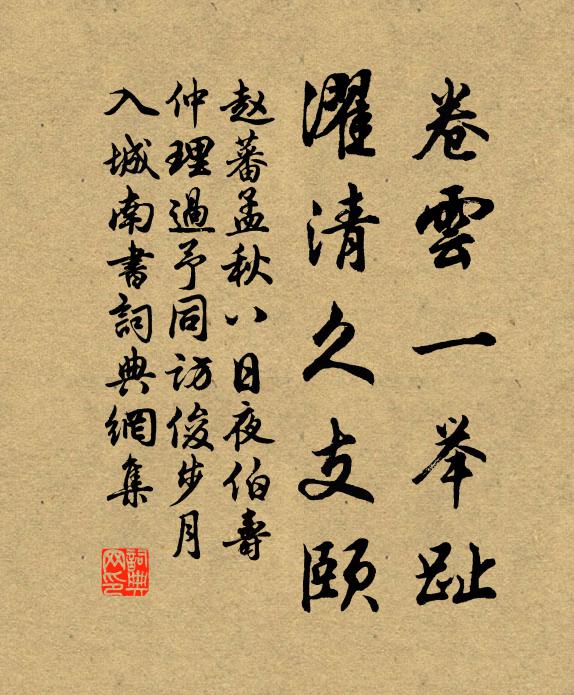 卷雲一举趾
濯清久支頤
赵蕃孟秋八日夜伯壽
仲理過予同訪俊步月
入城南書詞典網集
詞典网印